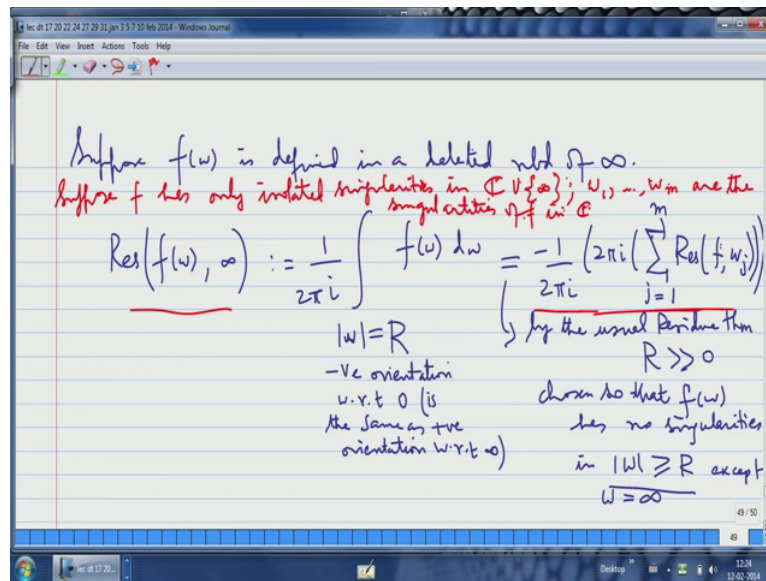 lec dt 17 20 22 24 27 29 31 jan 3 5 7 10 feb 2014 - Windows Journal
File Edit View Insert Actions Tools Help
Suppose f(w) is defined in a deleted nbd of ∞.
Suppose f has only isolated singularities in ℂ ∪ {∞}; w₁, ..., wₘ are the
singularities of f in ℂ
Res(f(w), ∞) := 1/(2πi) ∫ f(w) dw = -1/(2πi) (2πi (∑_{j=1}^{m} Res(f, wⱼ)))
|w| = R
-ve orientation
w.r.t 0 (is
the same as +ve
orientation w.r.t ∞)
by the usual Residue thm
R >> 0
chosen so that f(w)
has no singularities
in |w| ≥ R except
w = ∞
49 / 50
49
lec dt 17 20...
Desktop
12:24
12-02-2014